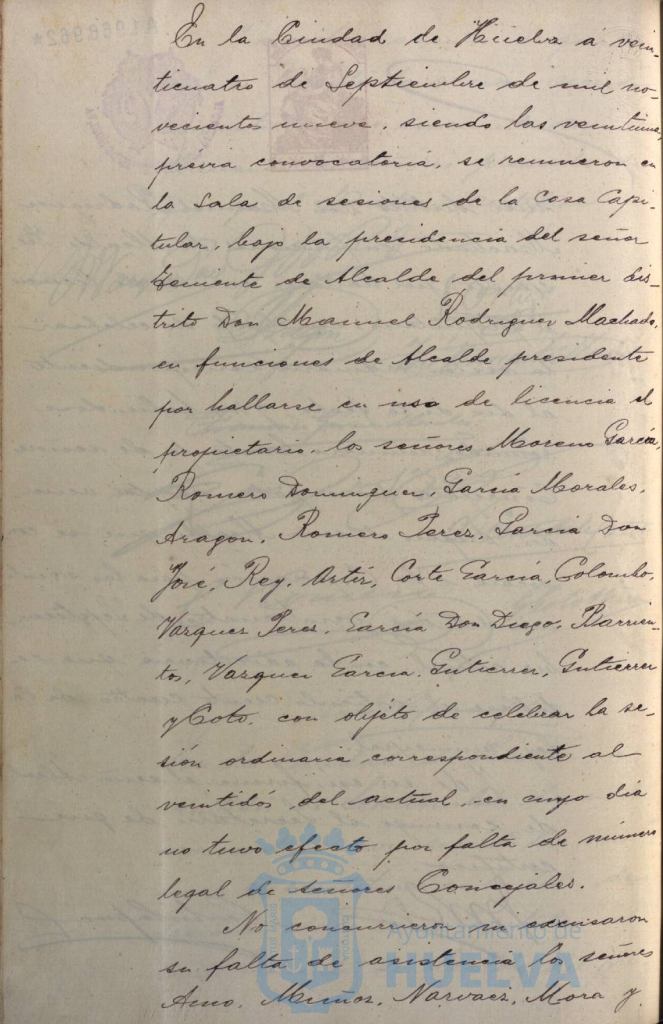 En la Ciudad de Huelva á vein-
ticuatro de Septiembre de mil no-
vecientos nueve, siendo las veintiuna,
prévia convocatoria, se reunieron en
la Sala de sesiones de la Casa Capi-
tular, bajo la presidencia del señor
Teniente de Alcalde del primer Dis-
trito Don Manuel Rodriguez Machado,
en funciones de Alcalde presidente
por hallarse en uso de licencia el
propietario, los señores Moreno García,
Romero Dominguez, García Morales,
Aragon, Romero Perez, Garcia Don
José, Rey, Ortiz, Corte García, Colombo,
Vazquez Perez, García Don Diego, Barrien-
tos, Vazquez Garcia, Gutierrez, Gutierrez
y Coto, con objeto de celebrar la se-
sión ordinaria correspondiente al
veintidós del actual, en cuyo día
no tuvo efecto por falta de número
legal de señores Concejales.
No concurrieron ni excusaron
su falta de asistencia los señores
Amo, Muñoz, Narvaez, Mora y
Ayuntamiento de
HUELVA